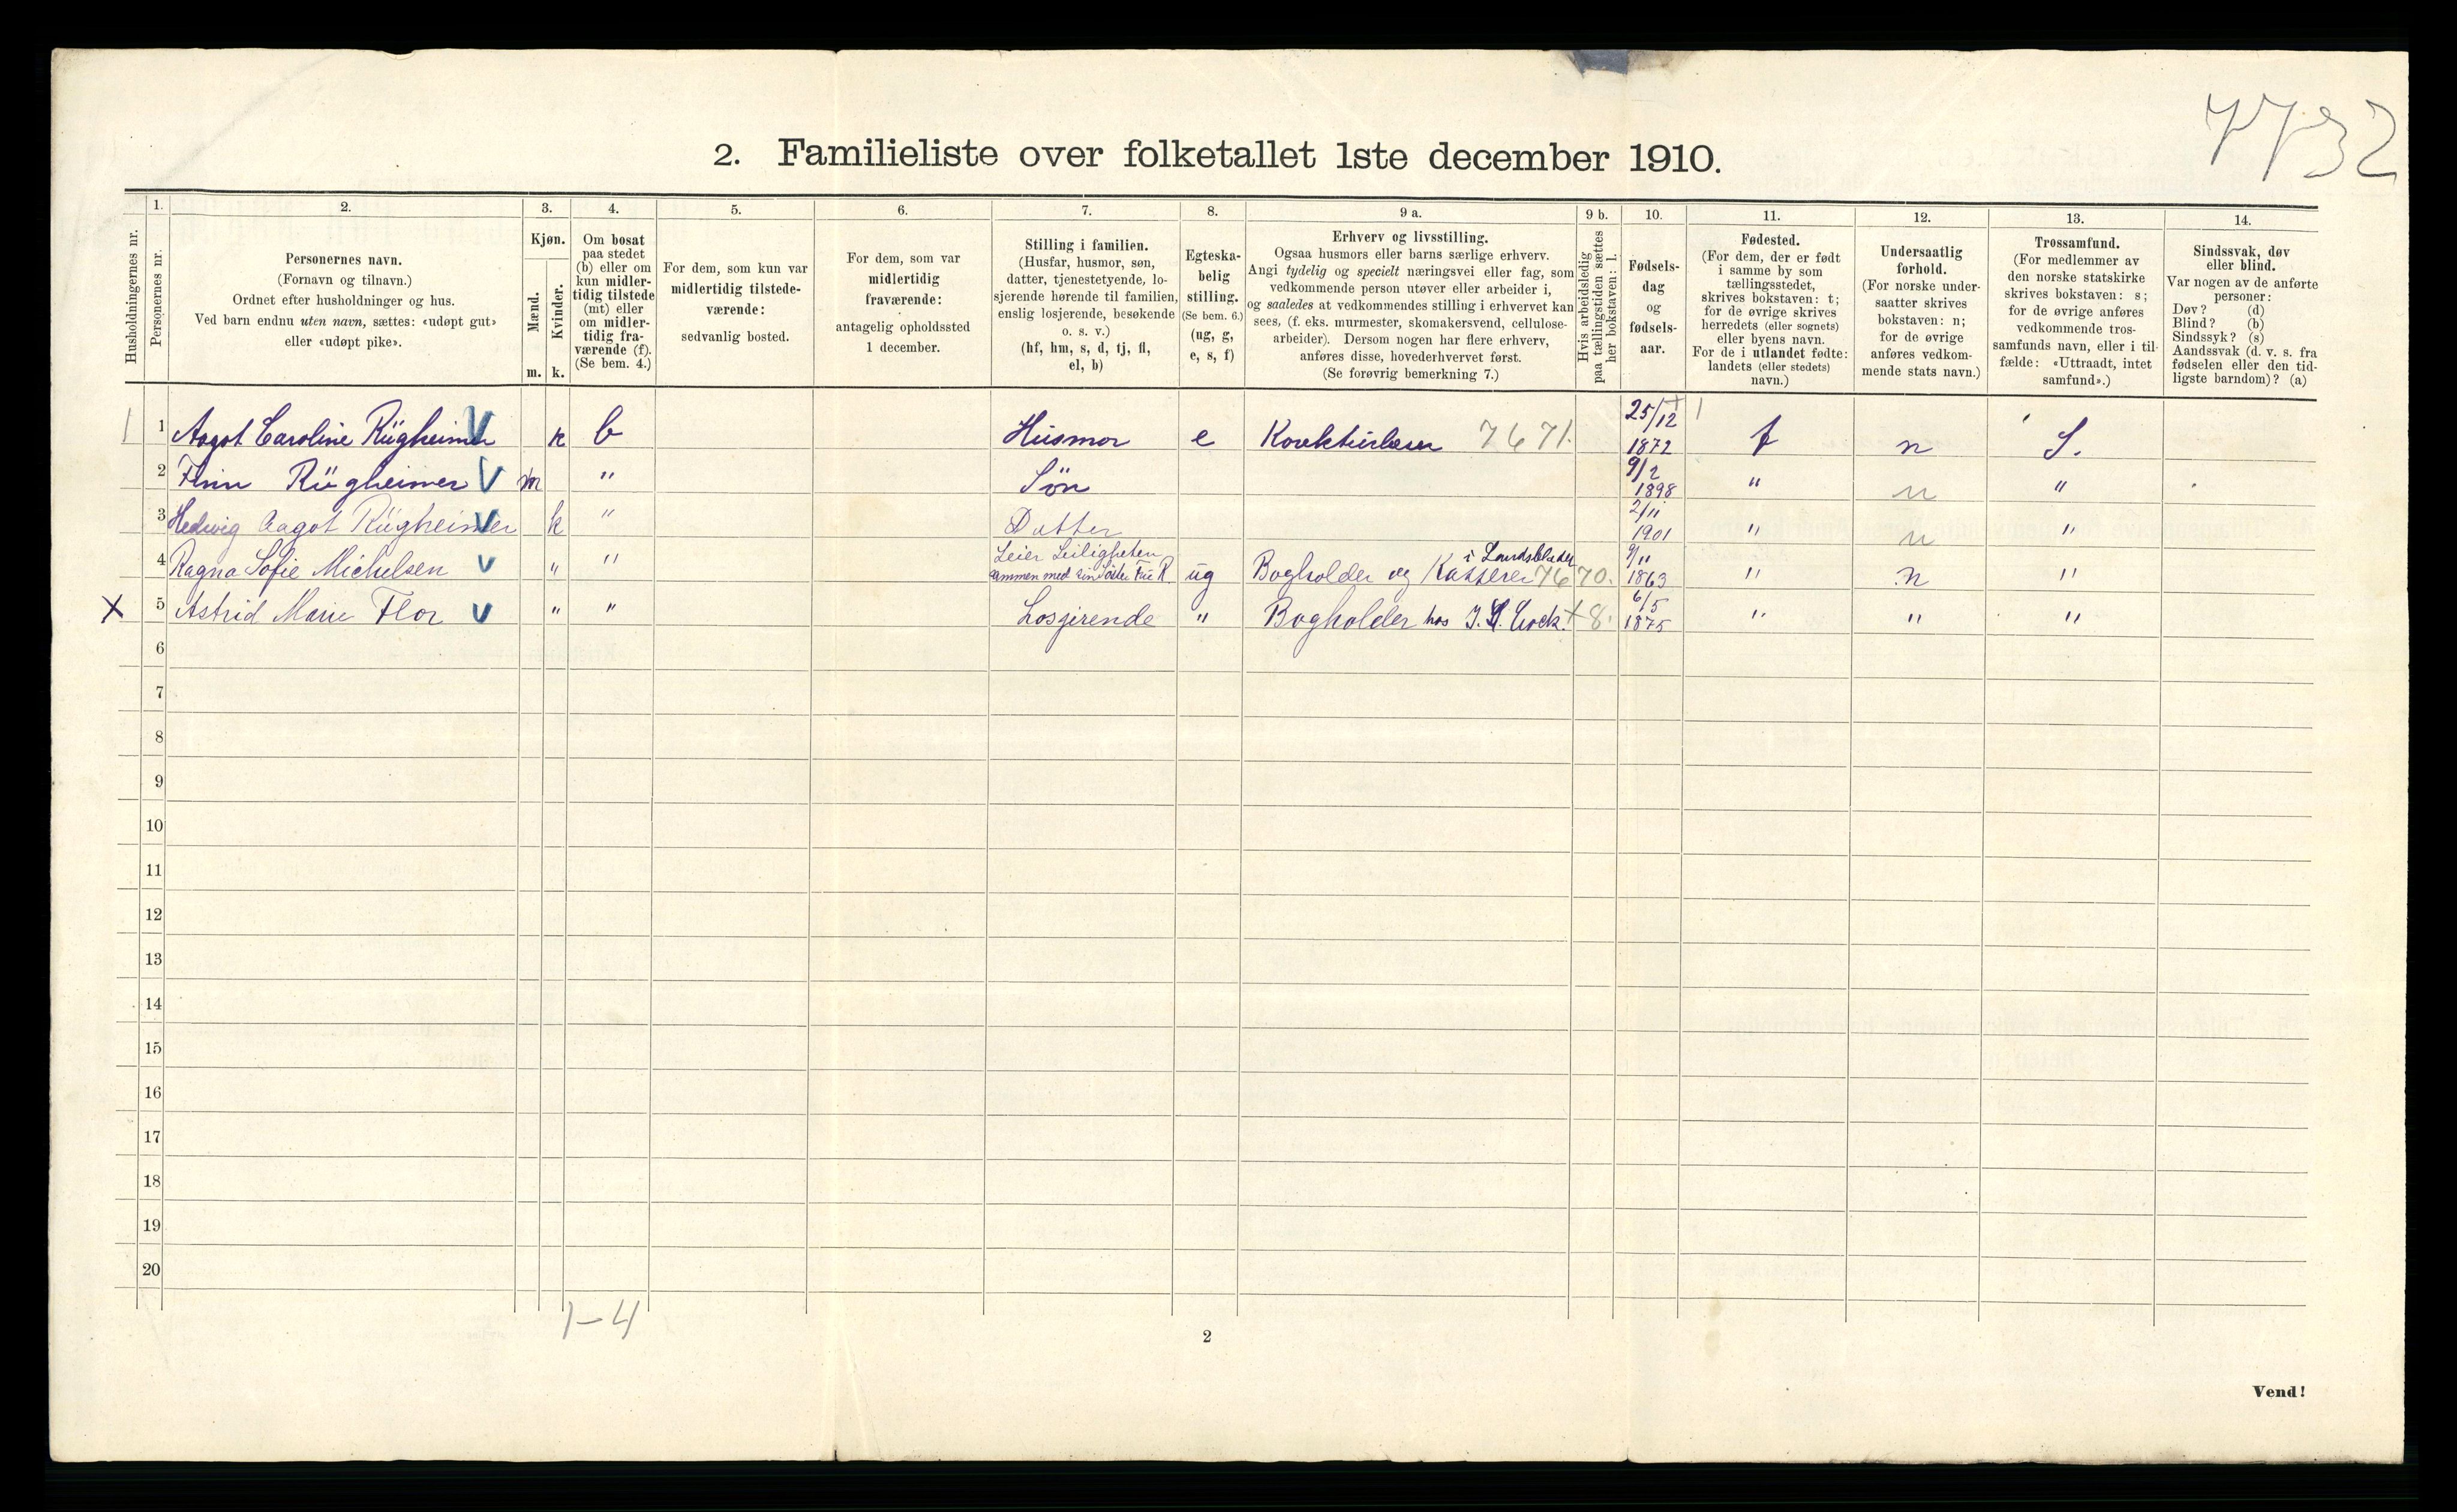 7732
2. Familieliste over folketallet 1ste december 1910.
Husholdningernes nr.
1.
Personernes nr.
2.
Personernes navn.
(Fornavn og tilnavn.)
Ordnet efter husholdninger og hus.
Ved barn endnu uten navn, sættes: «udøpt gut»
eller «udøpt pike».
3.
Kjøn.
Mænd.
m.
Kvinder.
k.
4.
Om bosat
paa stedet
(b) eller om
kun midler-
tidig tilstede
(mt) eller
om midler-
tidig fra-
værende (f).
(Se bem. 4.)
5.
For dem, som kun var
midlertidig tilstede-
værende:
sedvanlig bosted.
6.
For dem, som var
midlertidig
fraværende:
antagelig opholdssted
1 december.
7.
Stilling i familien.
(Husfar, husmor, søn,
datter, tjenestetyende, lo-
sjerende hørende til familien,
enslig losjerende, besøkende
o. s. v.)
(hf, hm, s, d, tj, fl,
el, b)
8.
Egteska-
belig
stilling.
(Se bem. 6.)
(ug, g,
e, s, f)
9 a.
Erhverv og livsstilling.
Ogsaa husmors eller barns særlige erhverv.
Angi tydelig og specielt næringsvei eller fag, som
vedkommende person utøver eller arbeider i,
og saaledes at vedkommendes stilling i erhvervet kan
sees, (f. eks. murmester, skomakersvend, cellulose-
arbeider). Dersom nogen har flere erhverv,
anføres disse, hovederhvervet først.
(Se forøvrig bemerkning 7.)
9 b.
Hvis arbeidsledig
paa tællingstiden sættes
her bokstaven: l.
10.
Fødsels-
dag
og
fødsels-
aar.
11.
Fødested.
(For dem, der er født
i samme by som
tællingsstedet,
skrives bokstaven: t;
for de øvrige skrives
herredets (eller sognets)
eller byens navn.
For de i utlandet fødte:
landets (eller stedets)
navn.)
12.
Undersaatlig
forhold.
(For norske under-
saatter skrives
bokstaven: n;
for de øvrige
anføres vedkom-
mende stats navn.)
13.
Trossamfund.
(For medlemmer av
den norske statskirke
skrives bokstaven: s;
for de øvrige anføres
vedkommende tros-
samfunds navn, eller i til-
fælde: «Uttraadt, intet
samfund».)
14.
Sindssvak, døv
eller blind.
Var nogen av de anførte
personer:
Døv? (d)
Blind? (b)
Sindssyk? (s)
Aandssvak (d. v. s. fra
fødselen eller den tid-
ligste barndom)? (a)
1 1 Aagot Caroline Rügheimer V k b Husmor e Korekturleser 7671. 25/12 1872 t n S.
2 Finn Rügheimer V m " Søn 9/2 1898 " n "
3 Hedvig Aagot Rügheimer V k " Datter 2/11 1901 " n "
4 Ragna Sofie Michelsen V " " Leier Leiligheten
sammen med sin Söster Fru R. ug Bogholder og Kasserer i Landsbladet 7670. 9/11 1863 " n "
X 5 Astrid Marie Flor V " " Losjerende " Bogholder hos J. L. Cock. + 8. 6/5 1875 " " "
6
7
8
9
10
11
12
13
14
15
16
17
18
19
20
1-4
2
Vend!